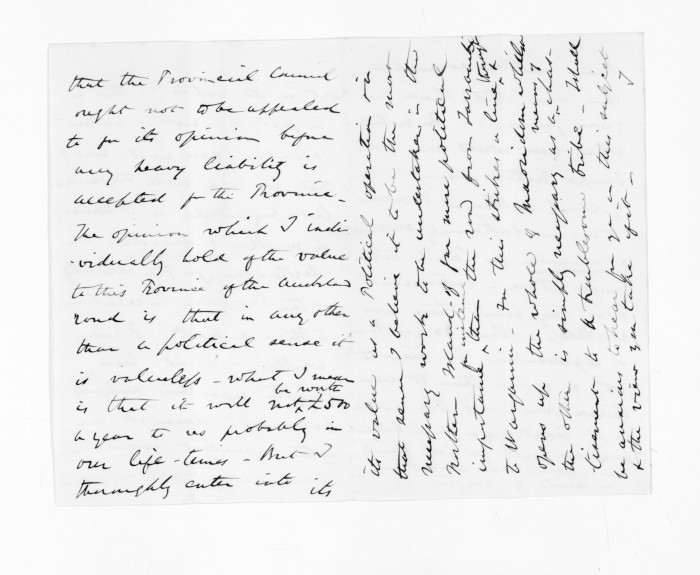 that the Provincial Council
ought not to be appealed
to for its opinion before
any heavy liability is
accepted for the Province -
The opinion which I indi
-vidually hold of the value
to this Province of the Auckland
road is that in any other
than a political sense it
is valueless - what I mean
is that it will not be worth £500
a year to us probably in
our life-times - But I
thoroughly enter into its
its value as a Political operation & in
that sense I believe it to be the most
necessary work to be undertaken in the
Northern Island - of far more political
importance for instance than the road from Taranaki
to Wanganui - for this strikes a line through &
opens up the whole of Maoridom while
the other is simply necessary as a means of chas-
tisement to a troublesome tribe - I shall
be anxious to hear from you on this subject
& the view you take of it -
I